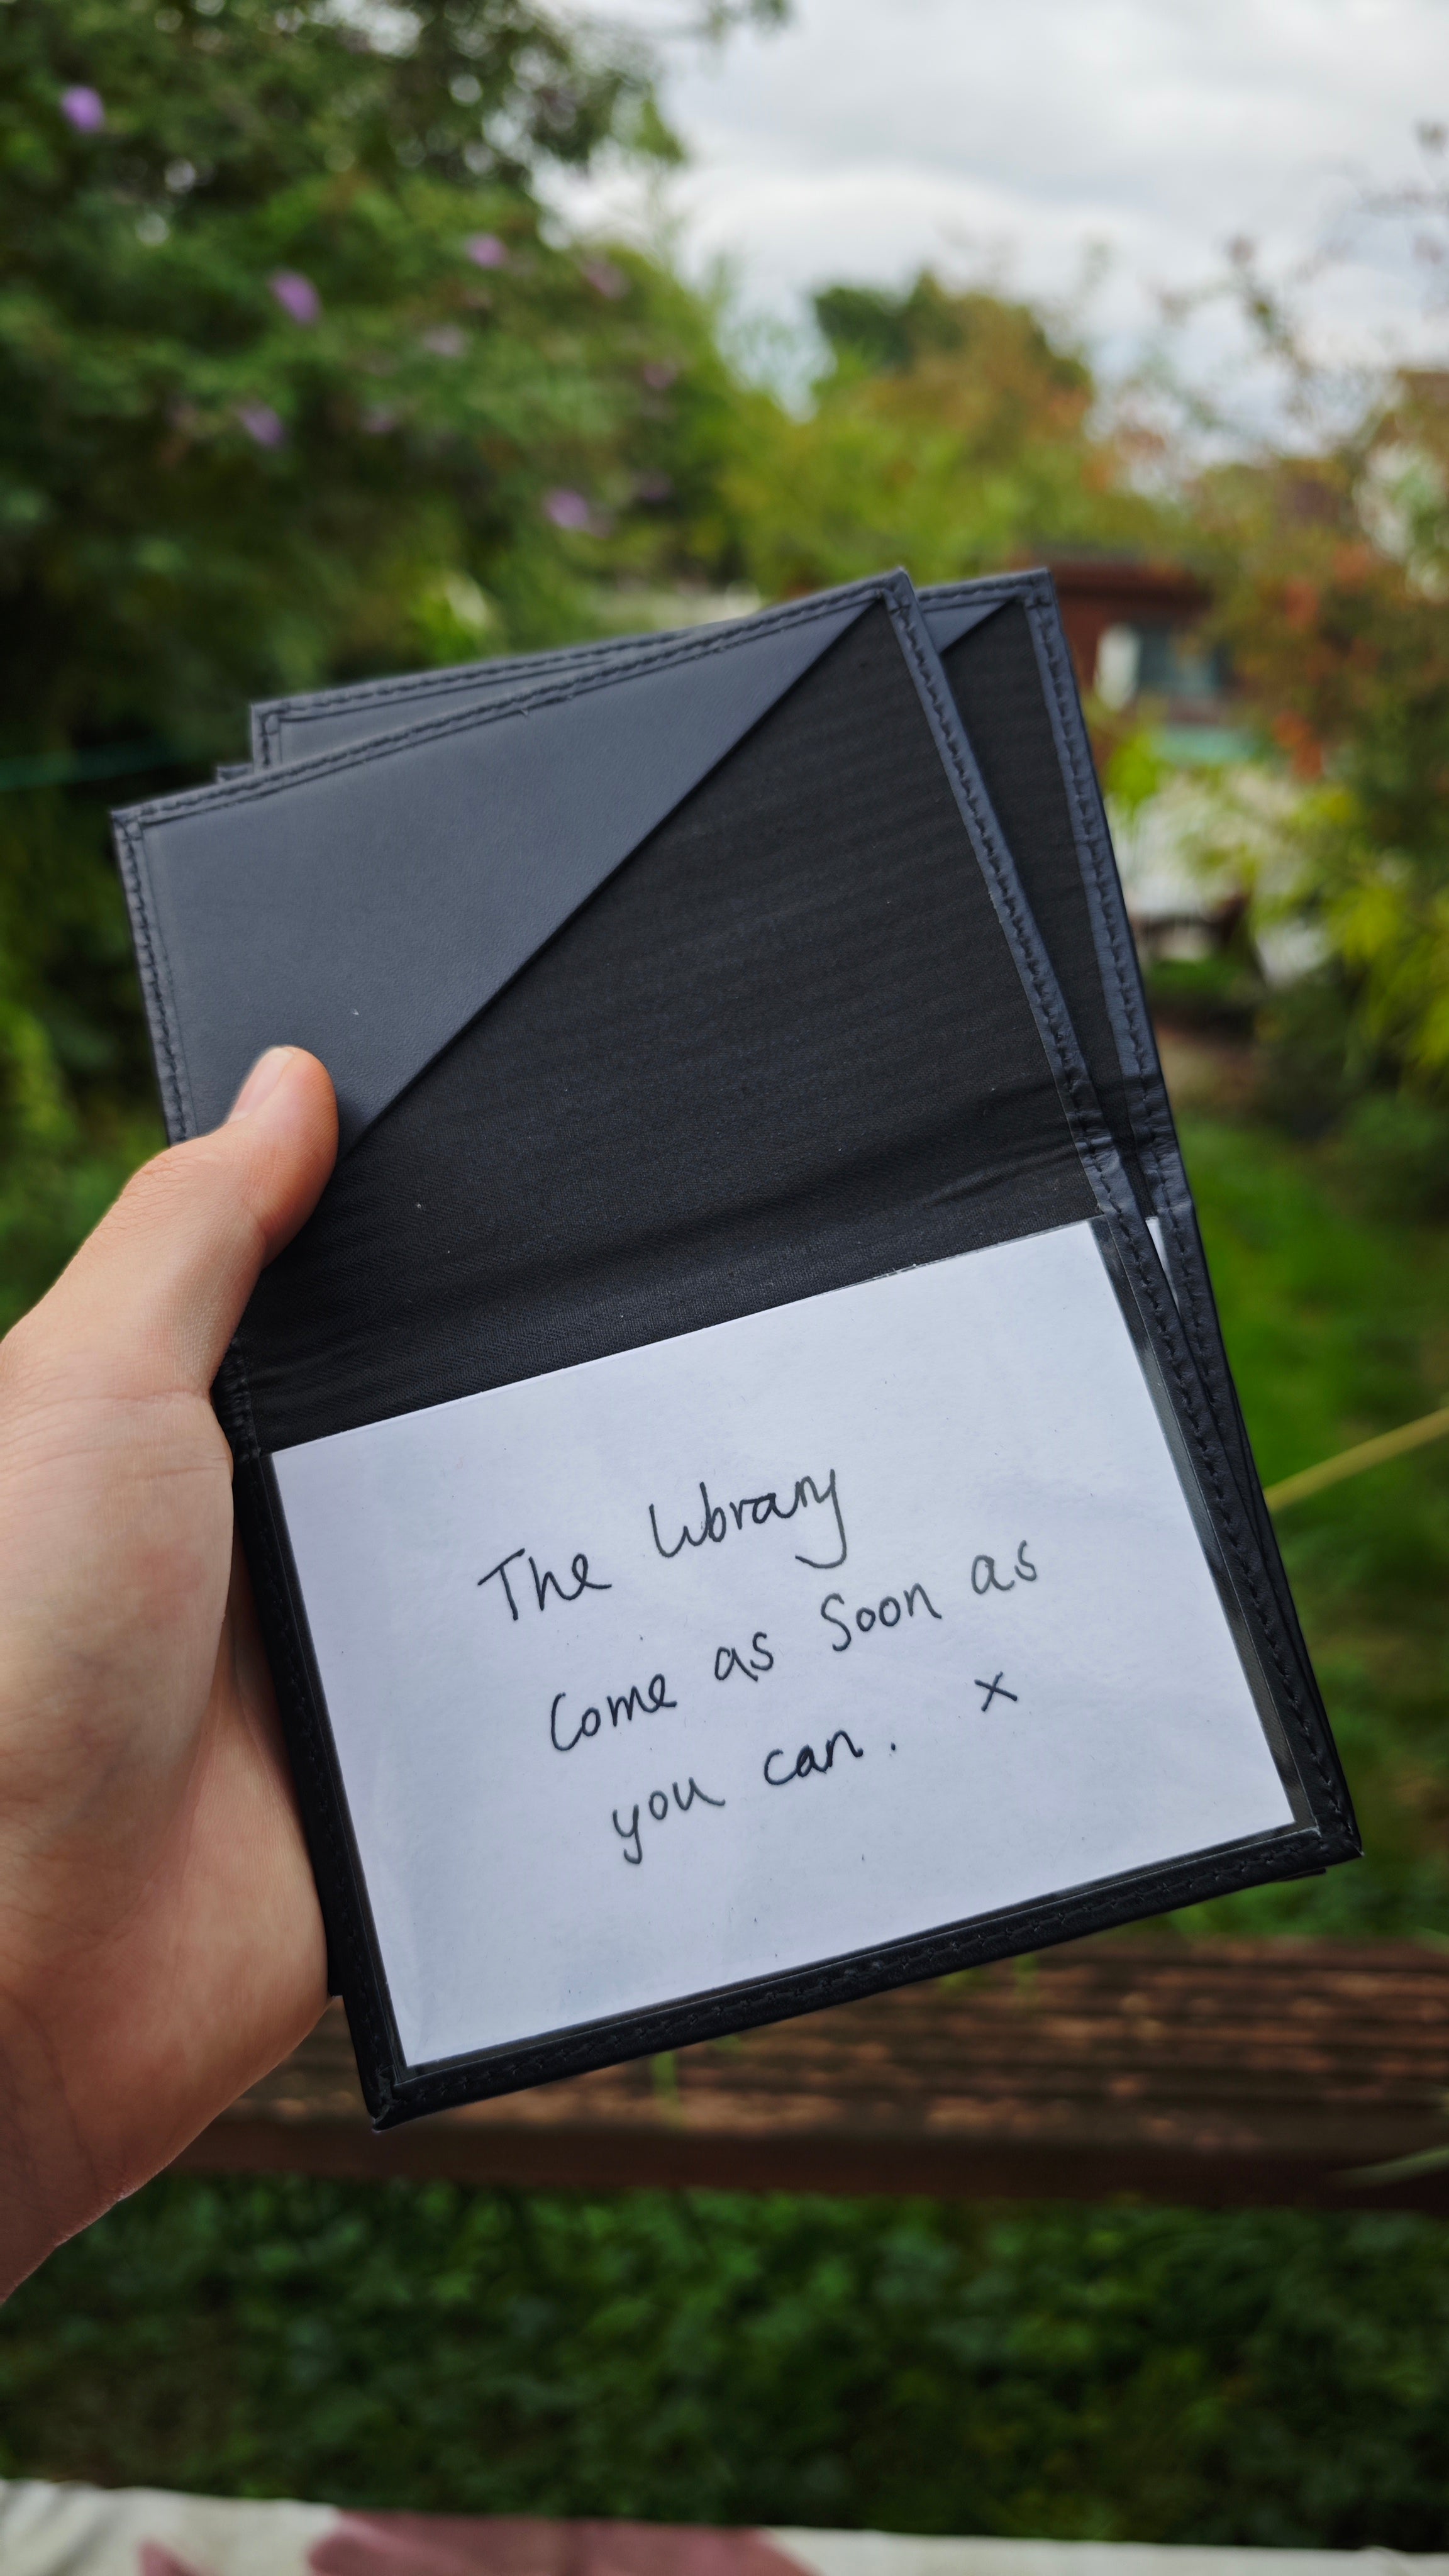 The library
Come as Soon as
you can. x